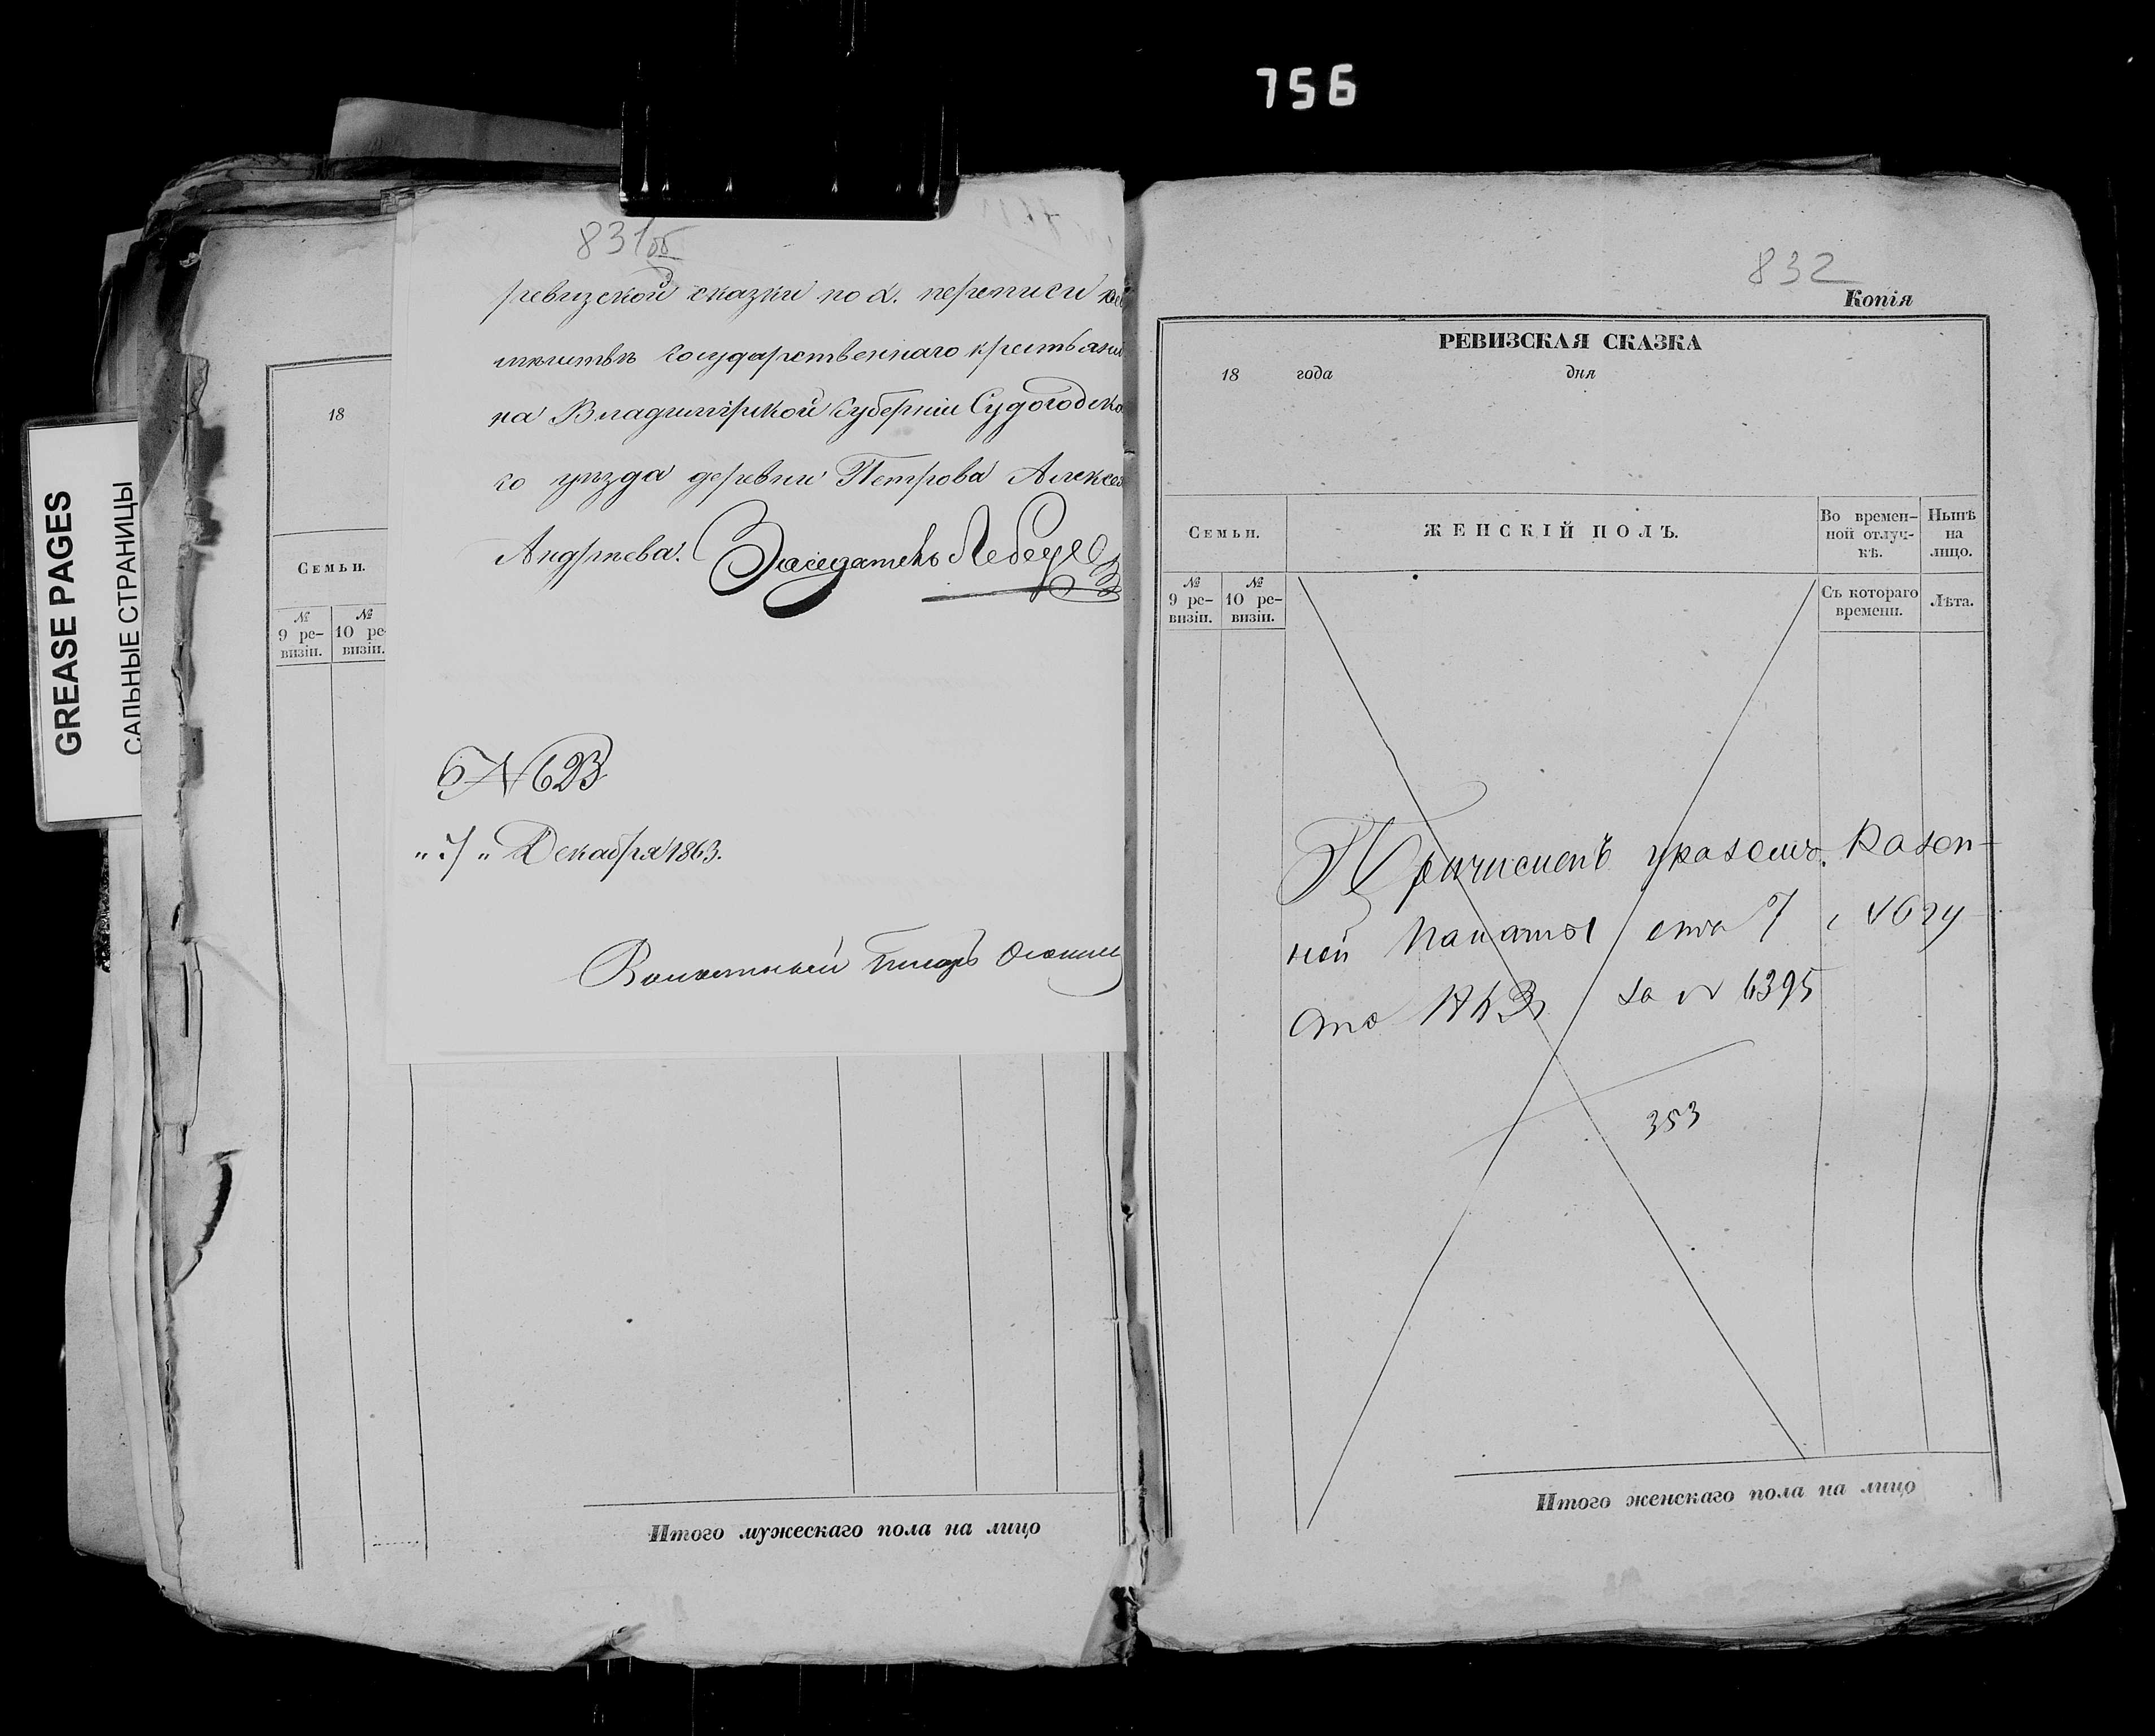 756
GREASE PAGES
САЛЬНЫЕ СТРАНИЦЫ
831об
ревизской сказки по X. переписи
государственнаго крестьяни
на Владимірской Губерніи Судогодска
го уѣзда деревни Петрова Алексея
Андреева. Заседатель Лебедев
№ 623
"7" Декабря 1863.
Волостный Писарь
18
Семьи.
№ 9 ре-визіи.
№ 10 ре-визіи.
Итого мужескаго пола на лицо
832
Копія
РЕВИЗСКАЯ СКАЗКА
18 года дня
Семьи.
ЖЕНСКІЙ ПОЛЪ.
Во времен-ной отлуч-кѣ.
Нынѣ на лицо.
№ 9 ре-визіи.
№ 10 ре-визіи.
Съ котораго времени.
Лѣта.
Причисленъ указомъ Казен-
ной Палаты отъ 7
за № 6395
353
Итого женскаго пола на лицо